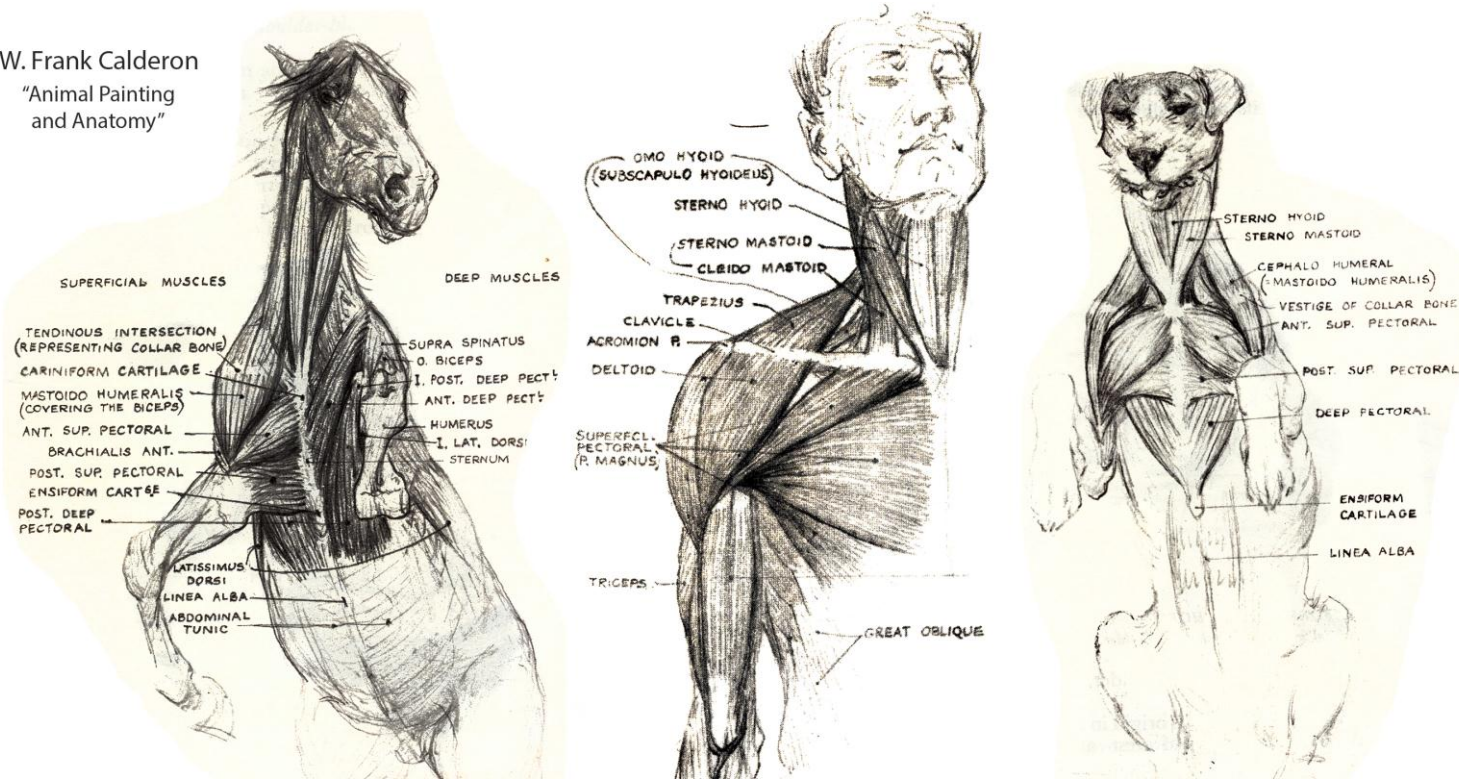 W. Frank Calderon
"Animal Painting
and Anatomy"
SUPERFICIAL MUSCLES
DEEP MUSCLES
TENDINOUS INTERSECTION
(REPRESENTING COLLAR BONE)
CARINIFORM CARTILAGE
MASTOIDO HUMERALIS
(COVERING THE BICEPS)
ANT. SUP. PECTORAL
BRACHIALIS ANT.
POST. SUP. PECTORAL
ENSIFORM CARTGE
POST. DEEP
PECTORAL
LATISSIMUS
DORSI
LINEA ALBA
ABDOMINAL
TUNIC
SUPRA SPINATUS
O. BICEPS
I. POST. DEEP PECTL
ANT. DEEP PECTL
HUMERUS
I. LAT. DORSI
STERNUM
OMO HYOID
(SUBSCAPULO HYOIDEUS)
STERNO HYOID
STERNO MASTOID
CLEIDO MASTOID
TRAPEZIUS
CLAVICLE
ACROMION P.
DELTOID
SUPERFCL.
PECTORAL
(P. MAGNUS)
TRICEPS
GREAT OBLIQUE
STERNO HYOID
STERNO MASTOID
CEPHALO HUMERAL
(=MASTOIDO HUMERALIS)
VESTIGE OF COLLAR BONE
ANT. SUP. PECTORAL
POST. SUP. PECTORAL
DEEP PECTORAL
ENSIFORM
CARTILAGE
LINEA ALBA